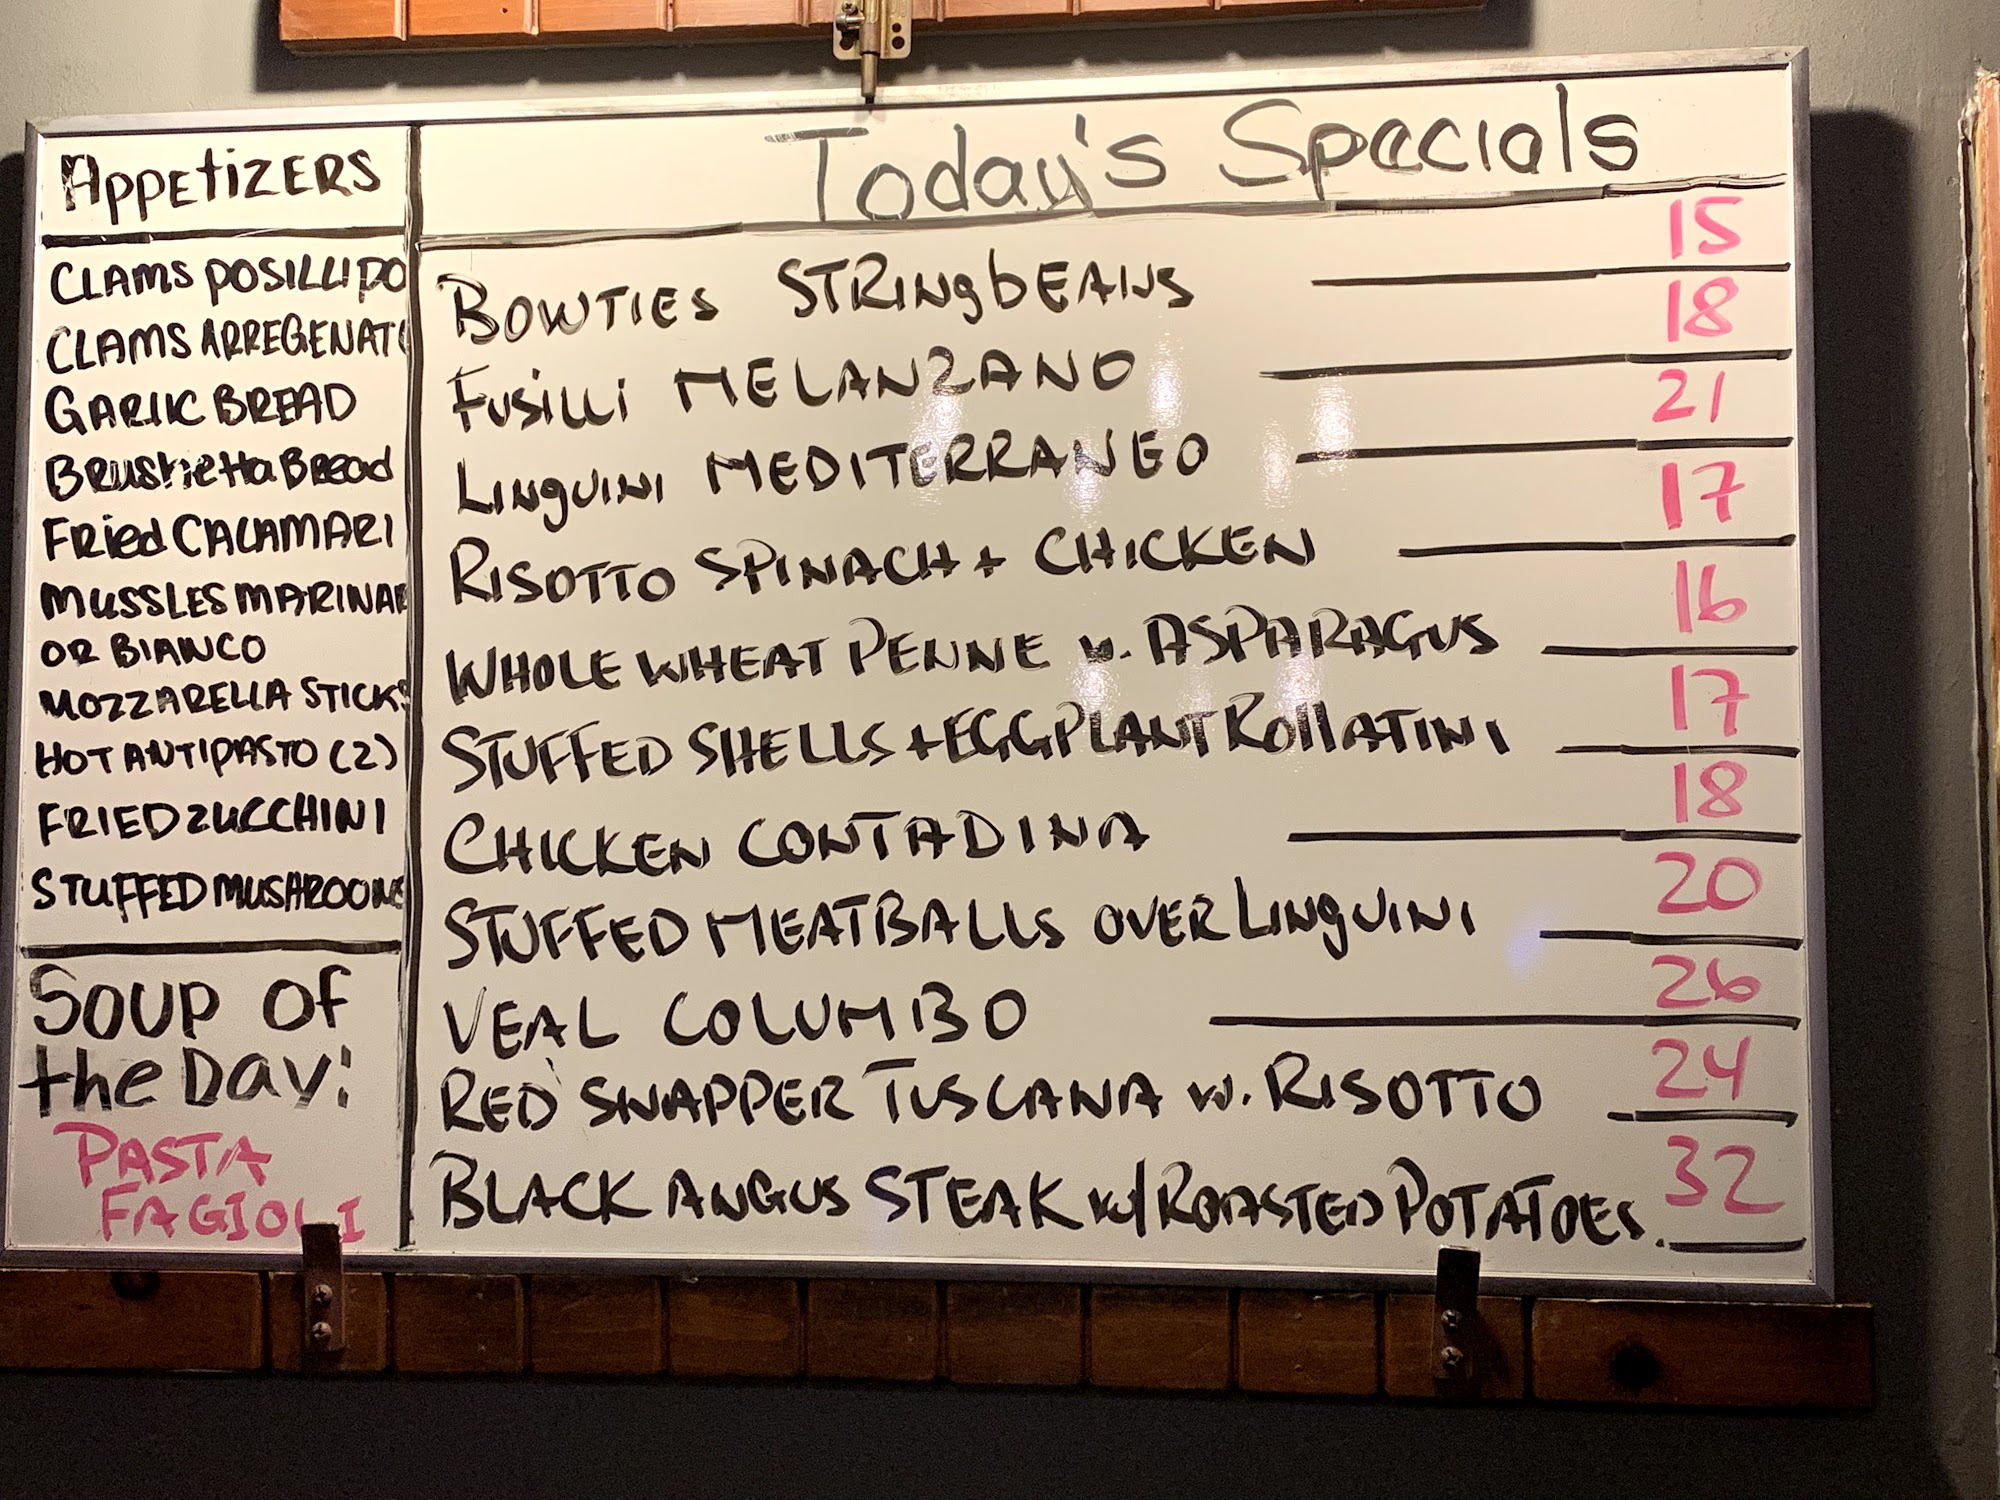 Appetizers
CLAMS POSILLIPO
CLAMS ARREGENATO
GARLIC BREAD
Brushetta Bread
Fried CALAMARI
MUSSLES MARINARE
OR BIANCO
MOZZARELLA STICKS
HOT ANTIPASTO (2)
FRIED ZUCCHINI
STUFFED MUSHROOMS
Soup of
the Day:
PASTA
FAGIOLI
Today's Specials
BOWTIES STRINgbEANS 15
FUSilli MELANZANO 18
LINguiNi MEDITERRANEO 21
RISOTTO SPINACH + CHICKEN 17
WHOLE WHEAT PENNE w. ASPARAGUS 16
STUFFED SHELLS + EGGPLANT ROllATINI 17
CHICKEN CONTADINA 18
STUFFED MEATBALLS OVER LINGUINI 20
VEAL COLUMBO 26
RED SNAPPER TUSCANA w. RISOTTO 24
BLACK ANGUS STEAK w/ ROASTED POTATOES. 32